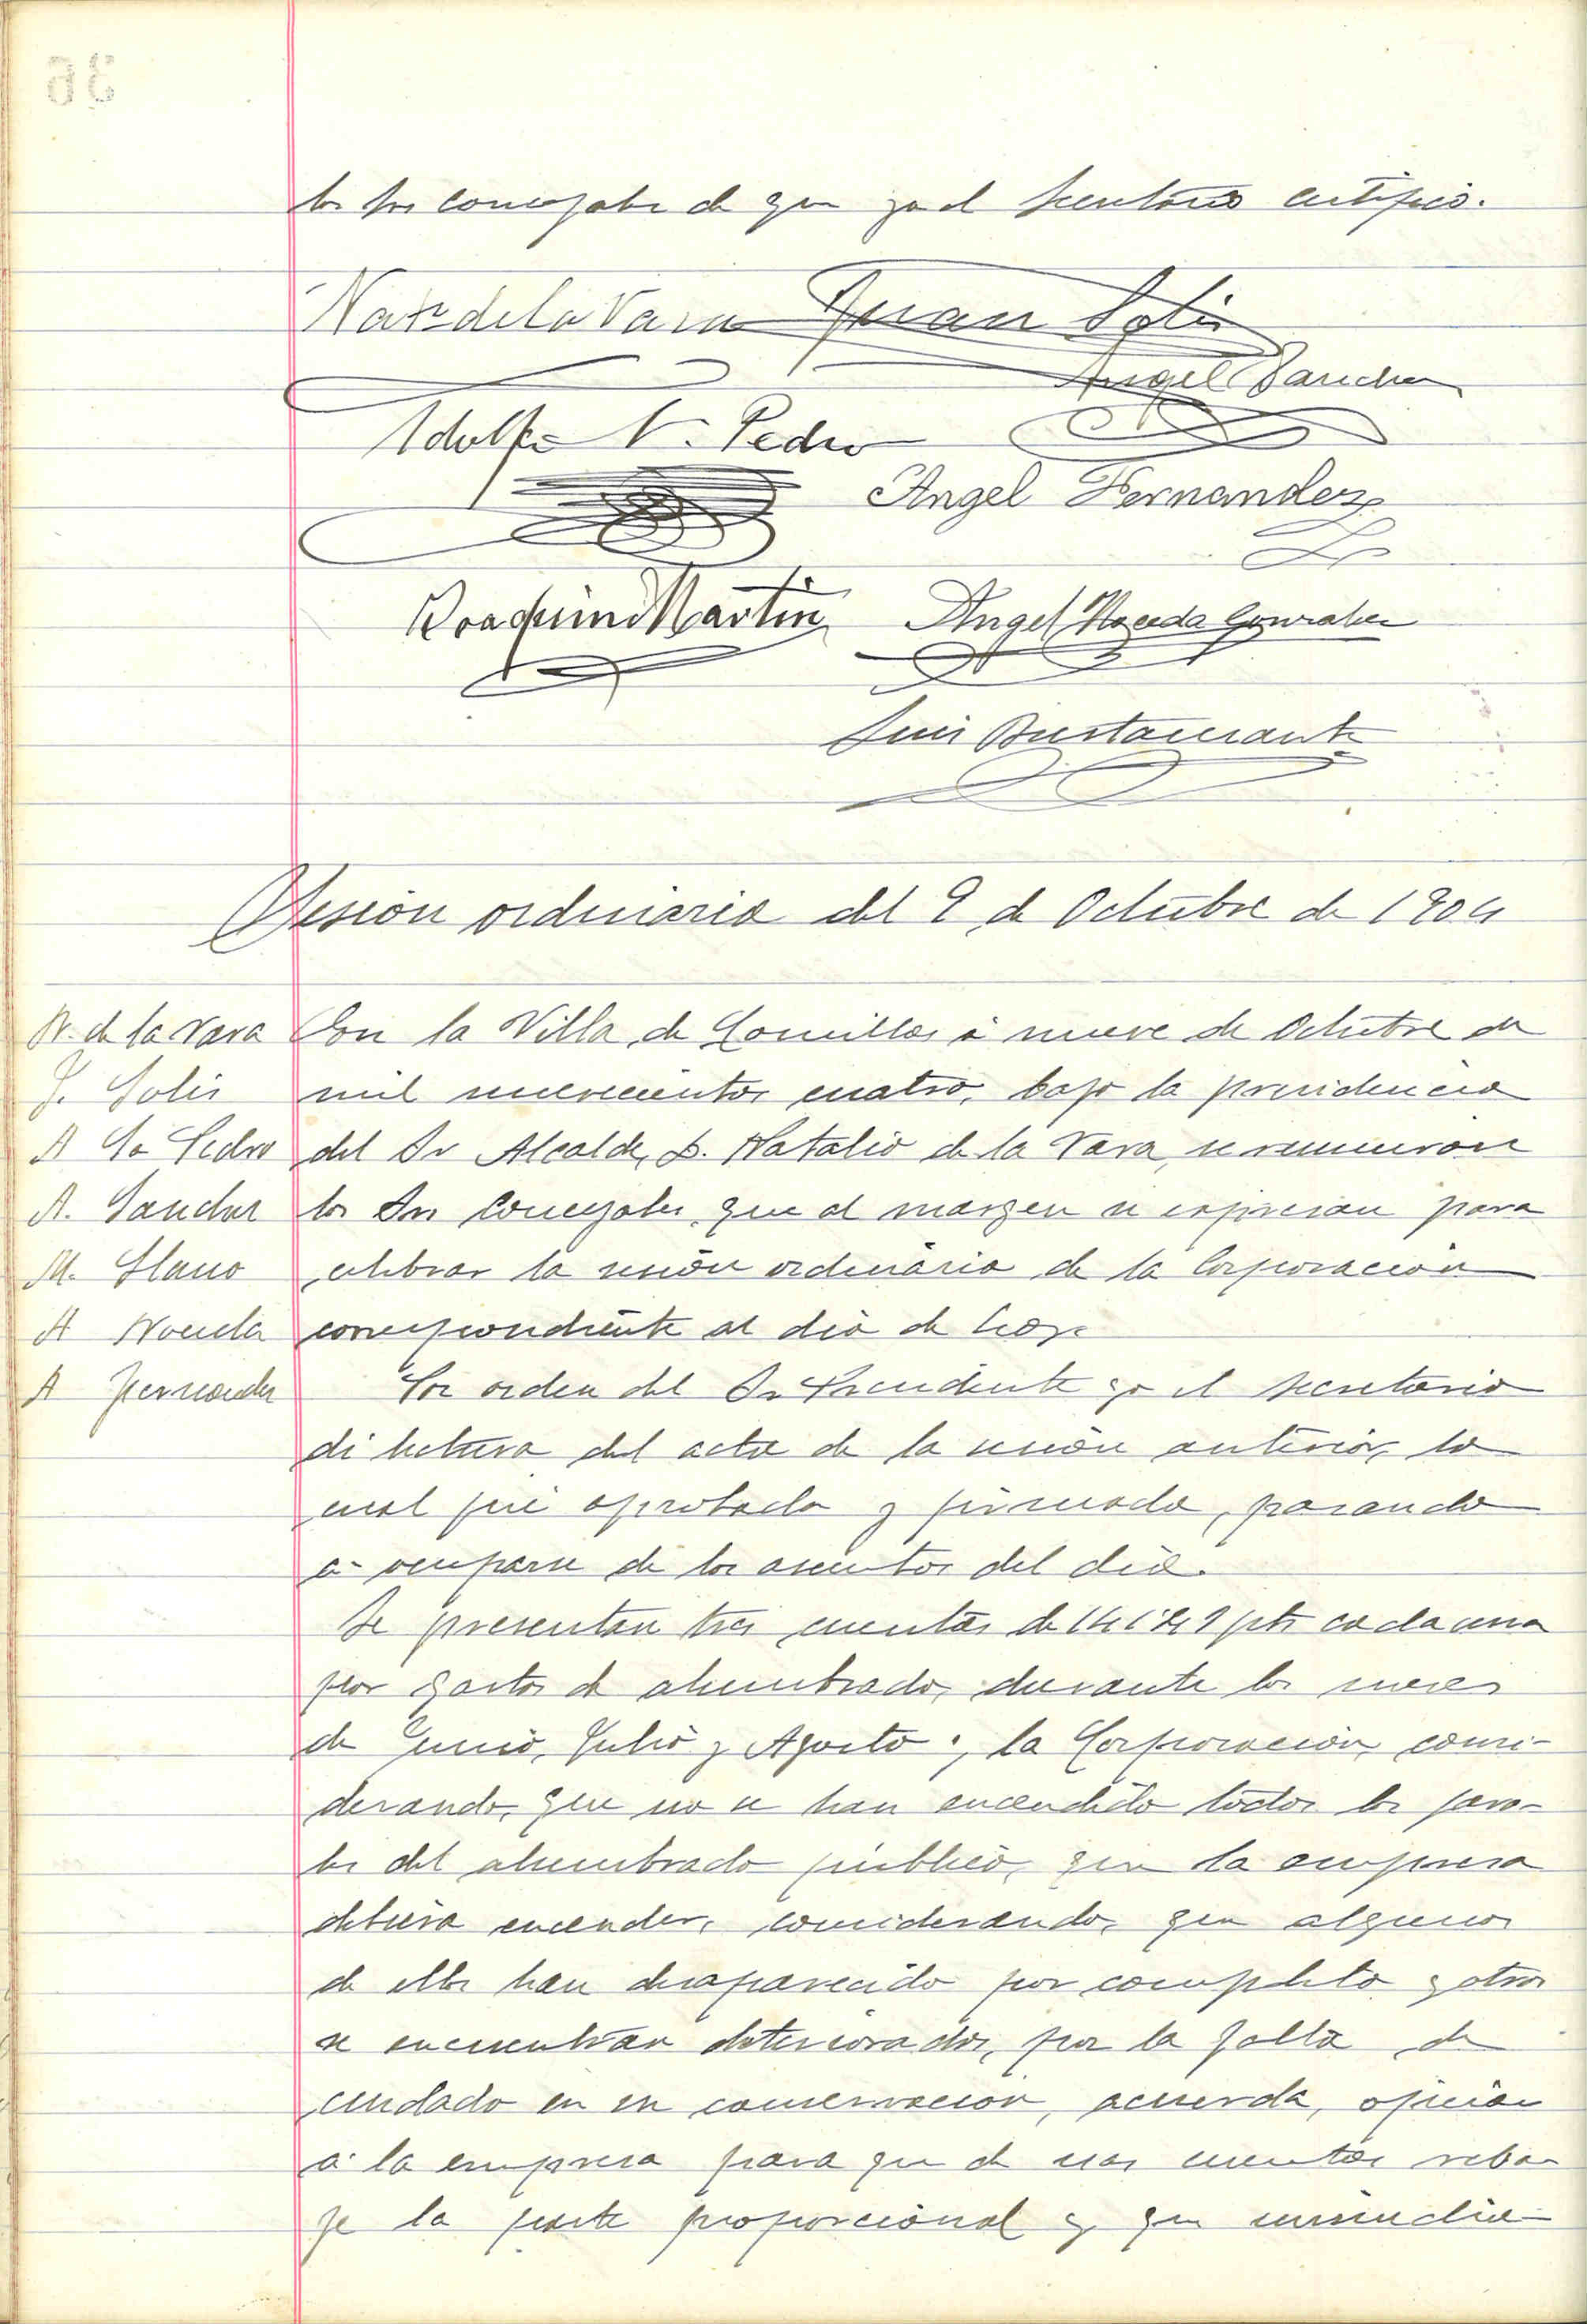 los Sres Concejales de que yo el Secretario certifico.
Nat. de la Vara Juan Solis
Angel Sanchez
Adolfo V. Pedro
Angel Hernandez
Joaquin Martin Angel Noceda Gonzalez
Luis Bustamante
Sesión ordinaria del 9 de Octubre de 1904
N. de la Vara
J. Solis
A Go Pedro
A. Sanchez
M. Llano
A Noceda
A Hernandez
En la Villa de Comillas á nueve de Octubre de
mil novecientos cuatro, bajo la presidencia
del Sr Alcalde, D. Natalio de la Vara, se reunieron
los Sres Concejales, que al margen se expresan para
celebrar la sesión ordinaria de la Corporación
correspondiente al dia de hoy.
Por orden del Sr Presidente yo el Secretario
di lectura del acta de la sesión anterior, la
cual fué aprobada y firmada, pasando
a ocuparse de los asuntos del dia.
Se presentan tres cuentas de pts cada una
por gastos de alumbrado, durante los meses
de Junio, Julio y Agosto; la Corporación, consi-
derando, que no se han encendido todos los faro-
les del alumbrado público, que la empresa
debiera encender, considerando, que algunos
de ellos han desaparecido por completo y otros
se encuentran deteriorados, por la falta de
cuidado en su conservación, acuerda, oficiar
á la empresa para que de esas cuentas reba-
je la parte proporcional y que inmedia-